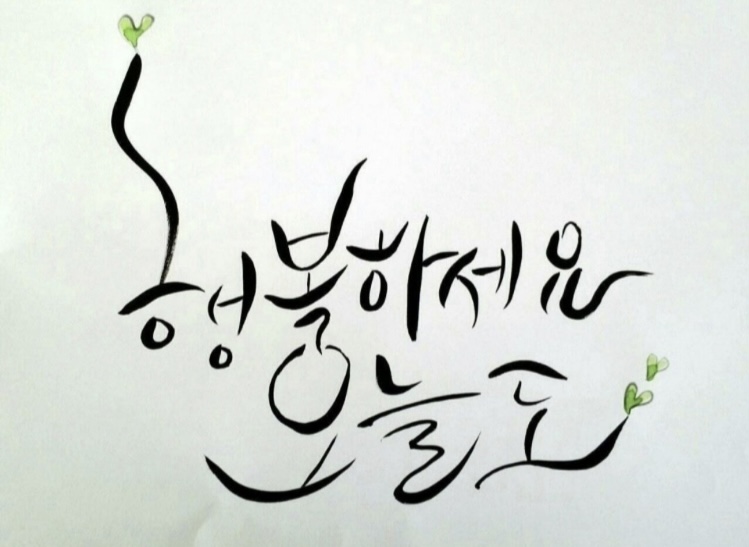 행복하세요
오늘도